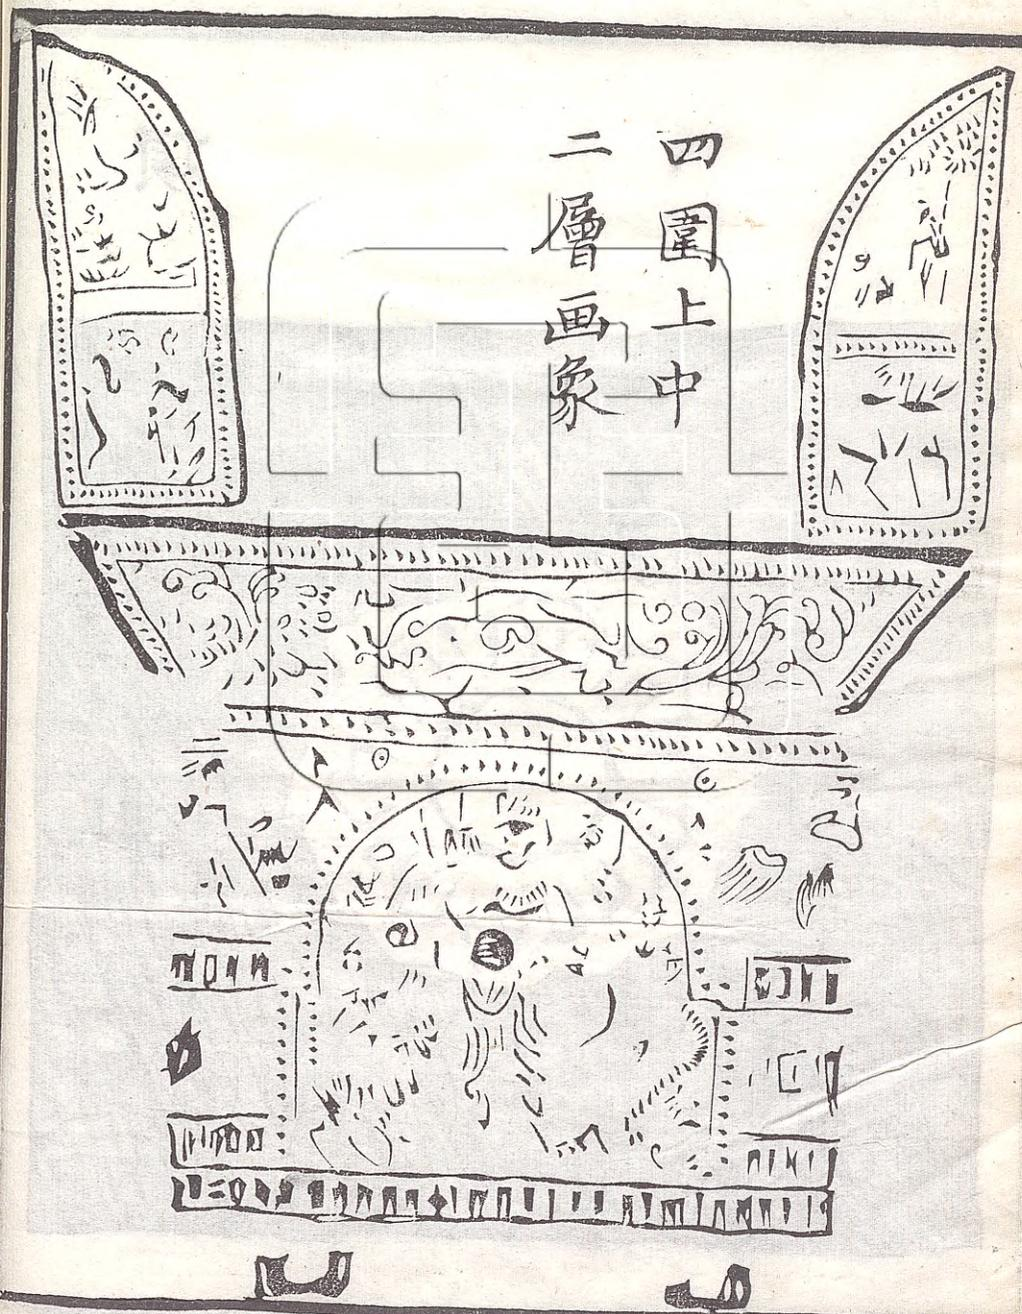 四圍上中
二層画象